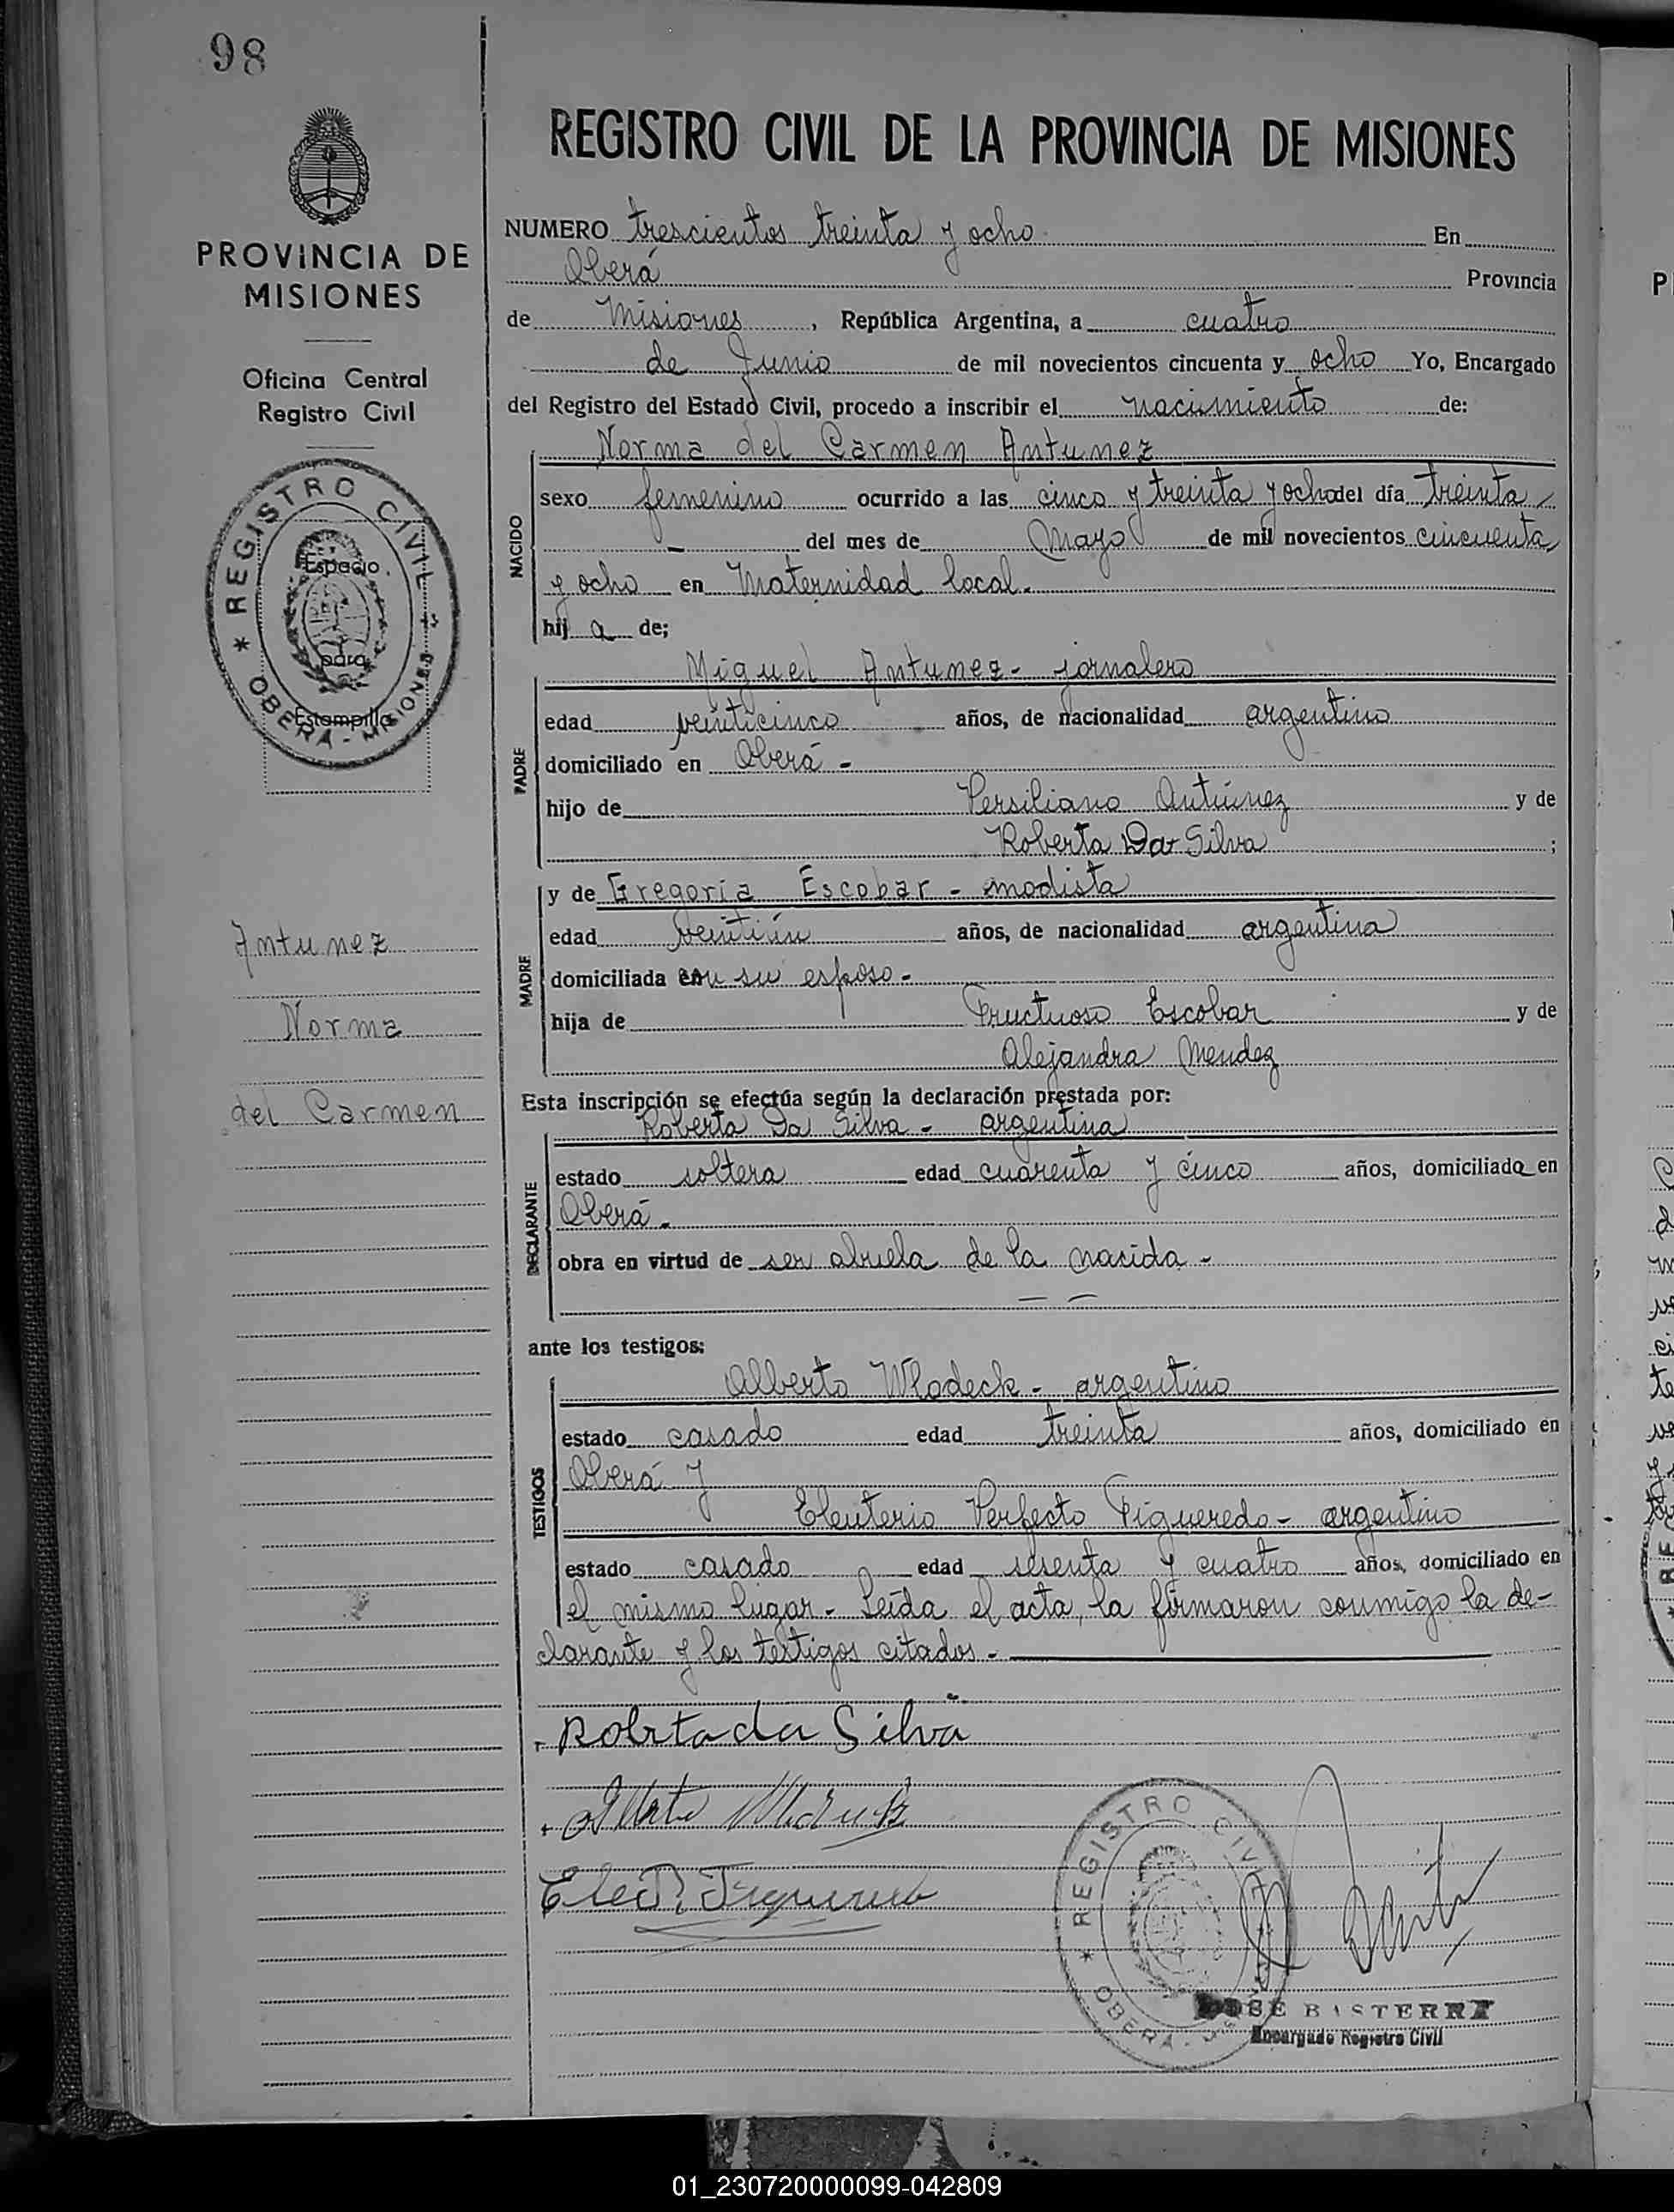 98
REGISTRO CIVIL DE LA PROVINCIA DE MISIONES
PROVINCIA DE
MISIONES
Oficina Central
Registro Civil
* REGISTRO CIVIL *
OBERA - MISIONES
Espacio
para
Estampilla
Antunez
Norma
del Carmen
NUMERO trescientos treinta y ocho En
Oberá Provincia
de Misiones, República Argentina, a cuatro
de Junio de mil novecientos cincuenta y ocho Yo, Encargado
del Registro del Estado Civil, procedo a inscribir el nacimiento de:
Norma del Carmen Antunez
NACIDO
sexo femenino ocurrido a las cinco y treinta y ocho del día treinta
- del mes de Mayo de mil novecientos cincuenta
y ocho en Maternidad local.
hij a de;
Miguel Antunez - jornalero
PADRE
edad veinticinco años, de nacionalidad argentino
domiciliado en Oberá -
hijo de Persiliano Antúnez y de
Roberta Da Silva ;
y de Gregoria Escobar - modista
MADRE
edad veintiún años, de nacionalidad argentina
domiciliada con su esposo -
hija de Fructuoso Escobar y de
Alejandra Mendez
Esta inscripción se efectúa según la declaración prestada por:
Roberta Da Silva - argentina
DECLARANTE
estado soltera edad cuarenta y cinco años, domiciliada en
Oberá -
obra en virtud de ser abuela de la nacida -
ante los testigos:
Alberto Wlodeck - argentino
TESTIGOS
estado casado edad treinta años, domiciliado en
Oberá y
Eleuterio Perfecto Figueredo - argentino
estado casado edad sesenta y cuatro años, domiciliado en
el mismo lugar - Leída el acta, la firmaron conmigo la de-
clarante y los testigos citados -
Robrta da Silva
* REGISTRO CIVIL
OBERA -
JOSE BASTERRA
Encargado Registro Civil
01_230720000099-042809